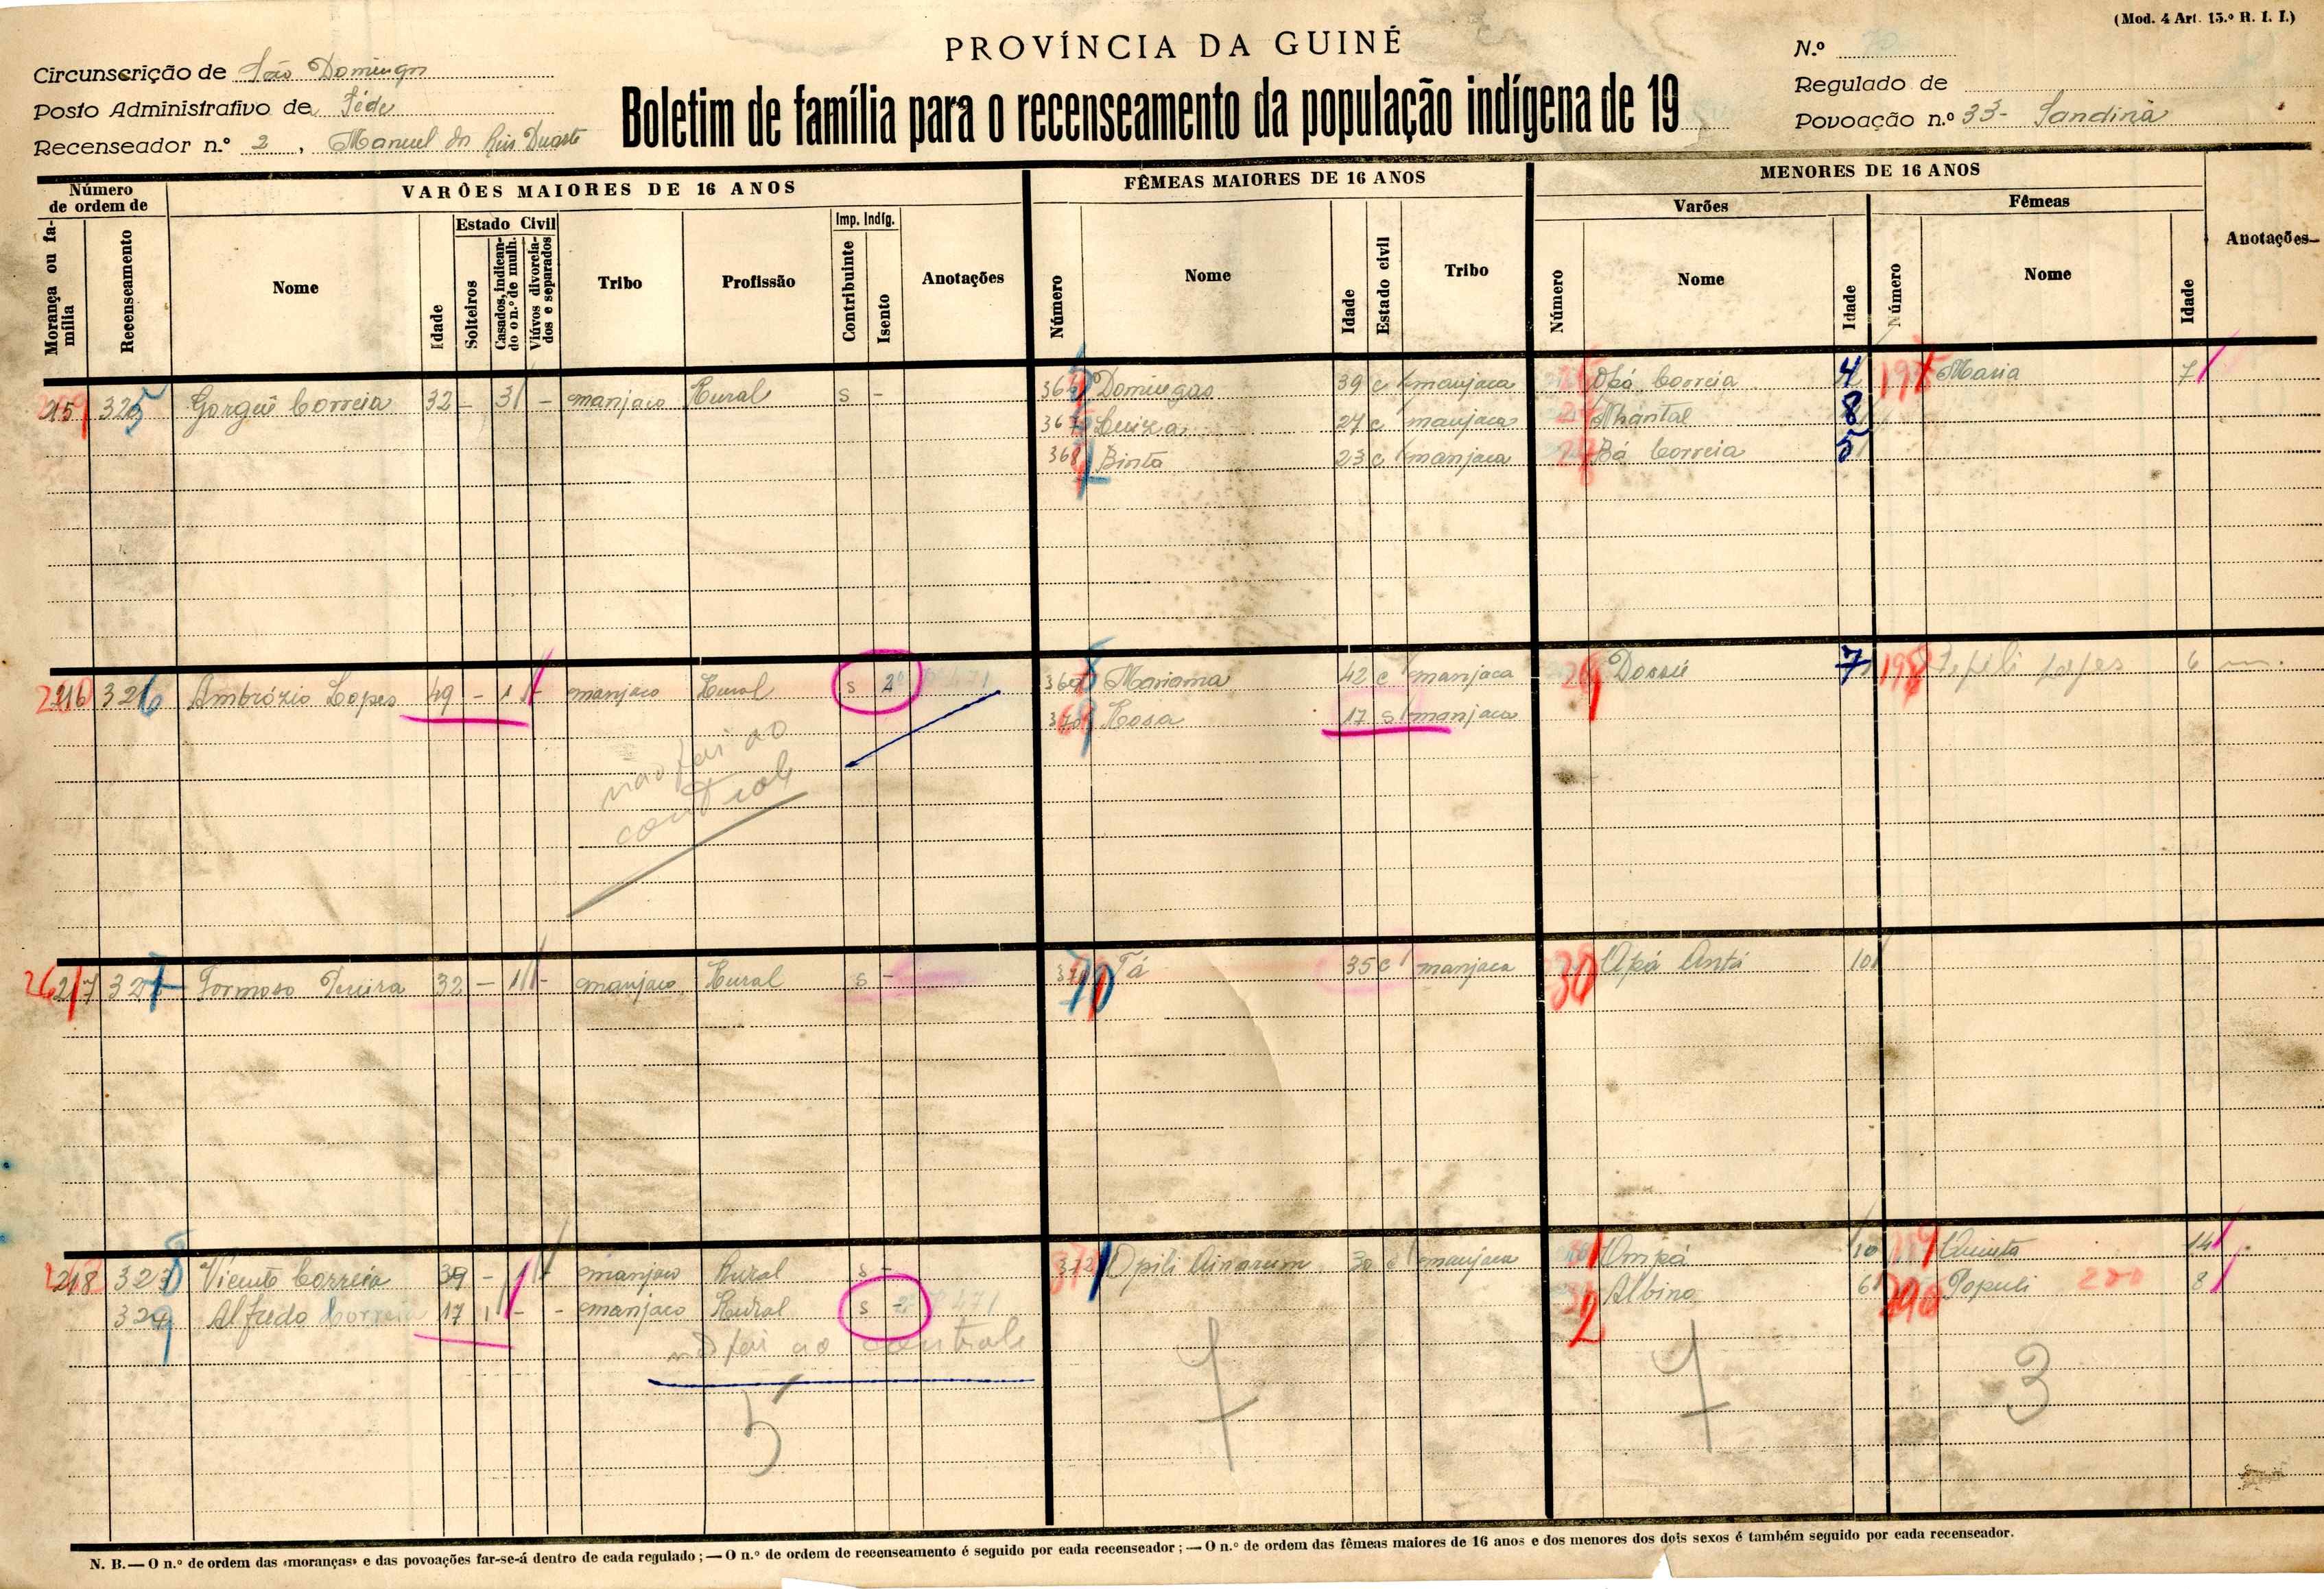 (Mod. 4 Art. 15.º R. I. I.)
PROVÍNCIA DA GUINÉ
Boletim de família para o recenseamento da população indígena de 19
Circunscrição de São Domingos
Posto Administrativo de
Recenseador n.º 2, Manuel dos Reis Duarte
N.º
Regulado de
Povoação n.º 33- Sandinà
Número de ordem de
VARÕES MAIORES DE 16 ANOS
FÊMEAS MAIORES DE 16 ANOS
MENORES DE 16 ANOS
Morança ou família
Recenseamento
Nome
Idade
Estado Civil
Solteiros
Casados, indicando o n.º de mulh.
Viúvos divorciados e separados
Tribo
Profissão
Imp. Indíg.
Contribuinte
Isento
Anotações
Número
Nome
Idade
Estado civil
Tribo
Varões
Número
Nome
Idade
Fêmeas
Número
Nome
Idade
Anotações
325 Gorguî Correia 32 - 3 - manjaco Rural s -
Domingas 39 c manjaca
4
197 Maria 7
Luiza 27 c manjaca
Nhantal 8
Binta 23 c manjaca
Bá Correia 5
326 Ambrózio Lopes 49 - 1 - manjaco Rural s
Mariama 42 c manjaca
7
198 6 m.
Rosa 17 s manjaca
não foi ao
control
327 Formoso Pereira 32 - 1 - manjaco Rural s -
Tá 35 c manjaca
30 Apá Antá 10
328 Vicente Correia 39 - 1 - manjaco Rural s -
manjaca
Ompá 10
14
329 Alfredo Correia 17 1 - - manjaco Rural s
Albino 6
Populi 200 8
não foi ao controle
5
7
7
3
N. B. — O n.º de ordem das «moranças» e das povoações far-se-á dentro de cada regulado; — O n.º de ordem de recenseamento é seguido por cada recenseador; — O n.º de ordem das fêmeas maiores de 16 anos e dos menores dos dois sexos é também seguido por cada recenseador.